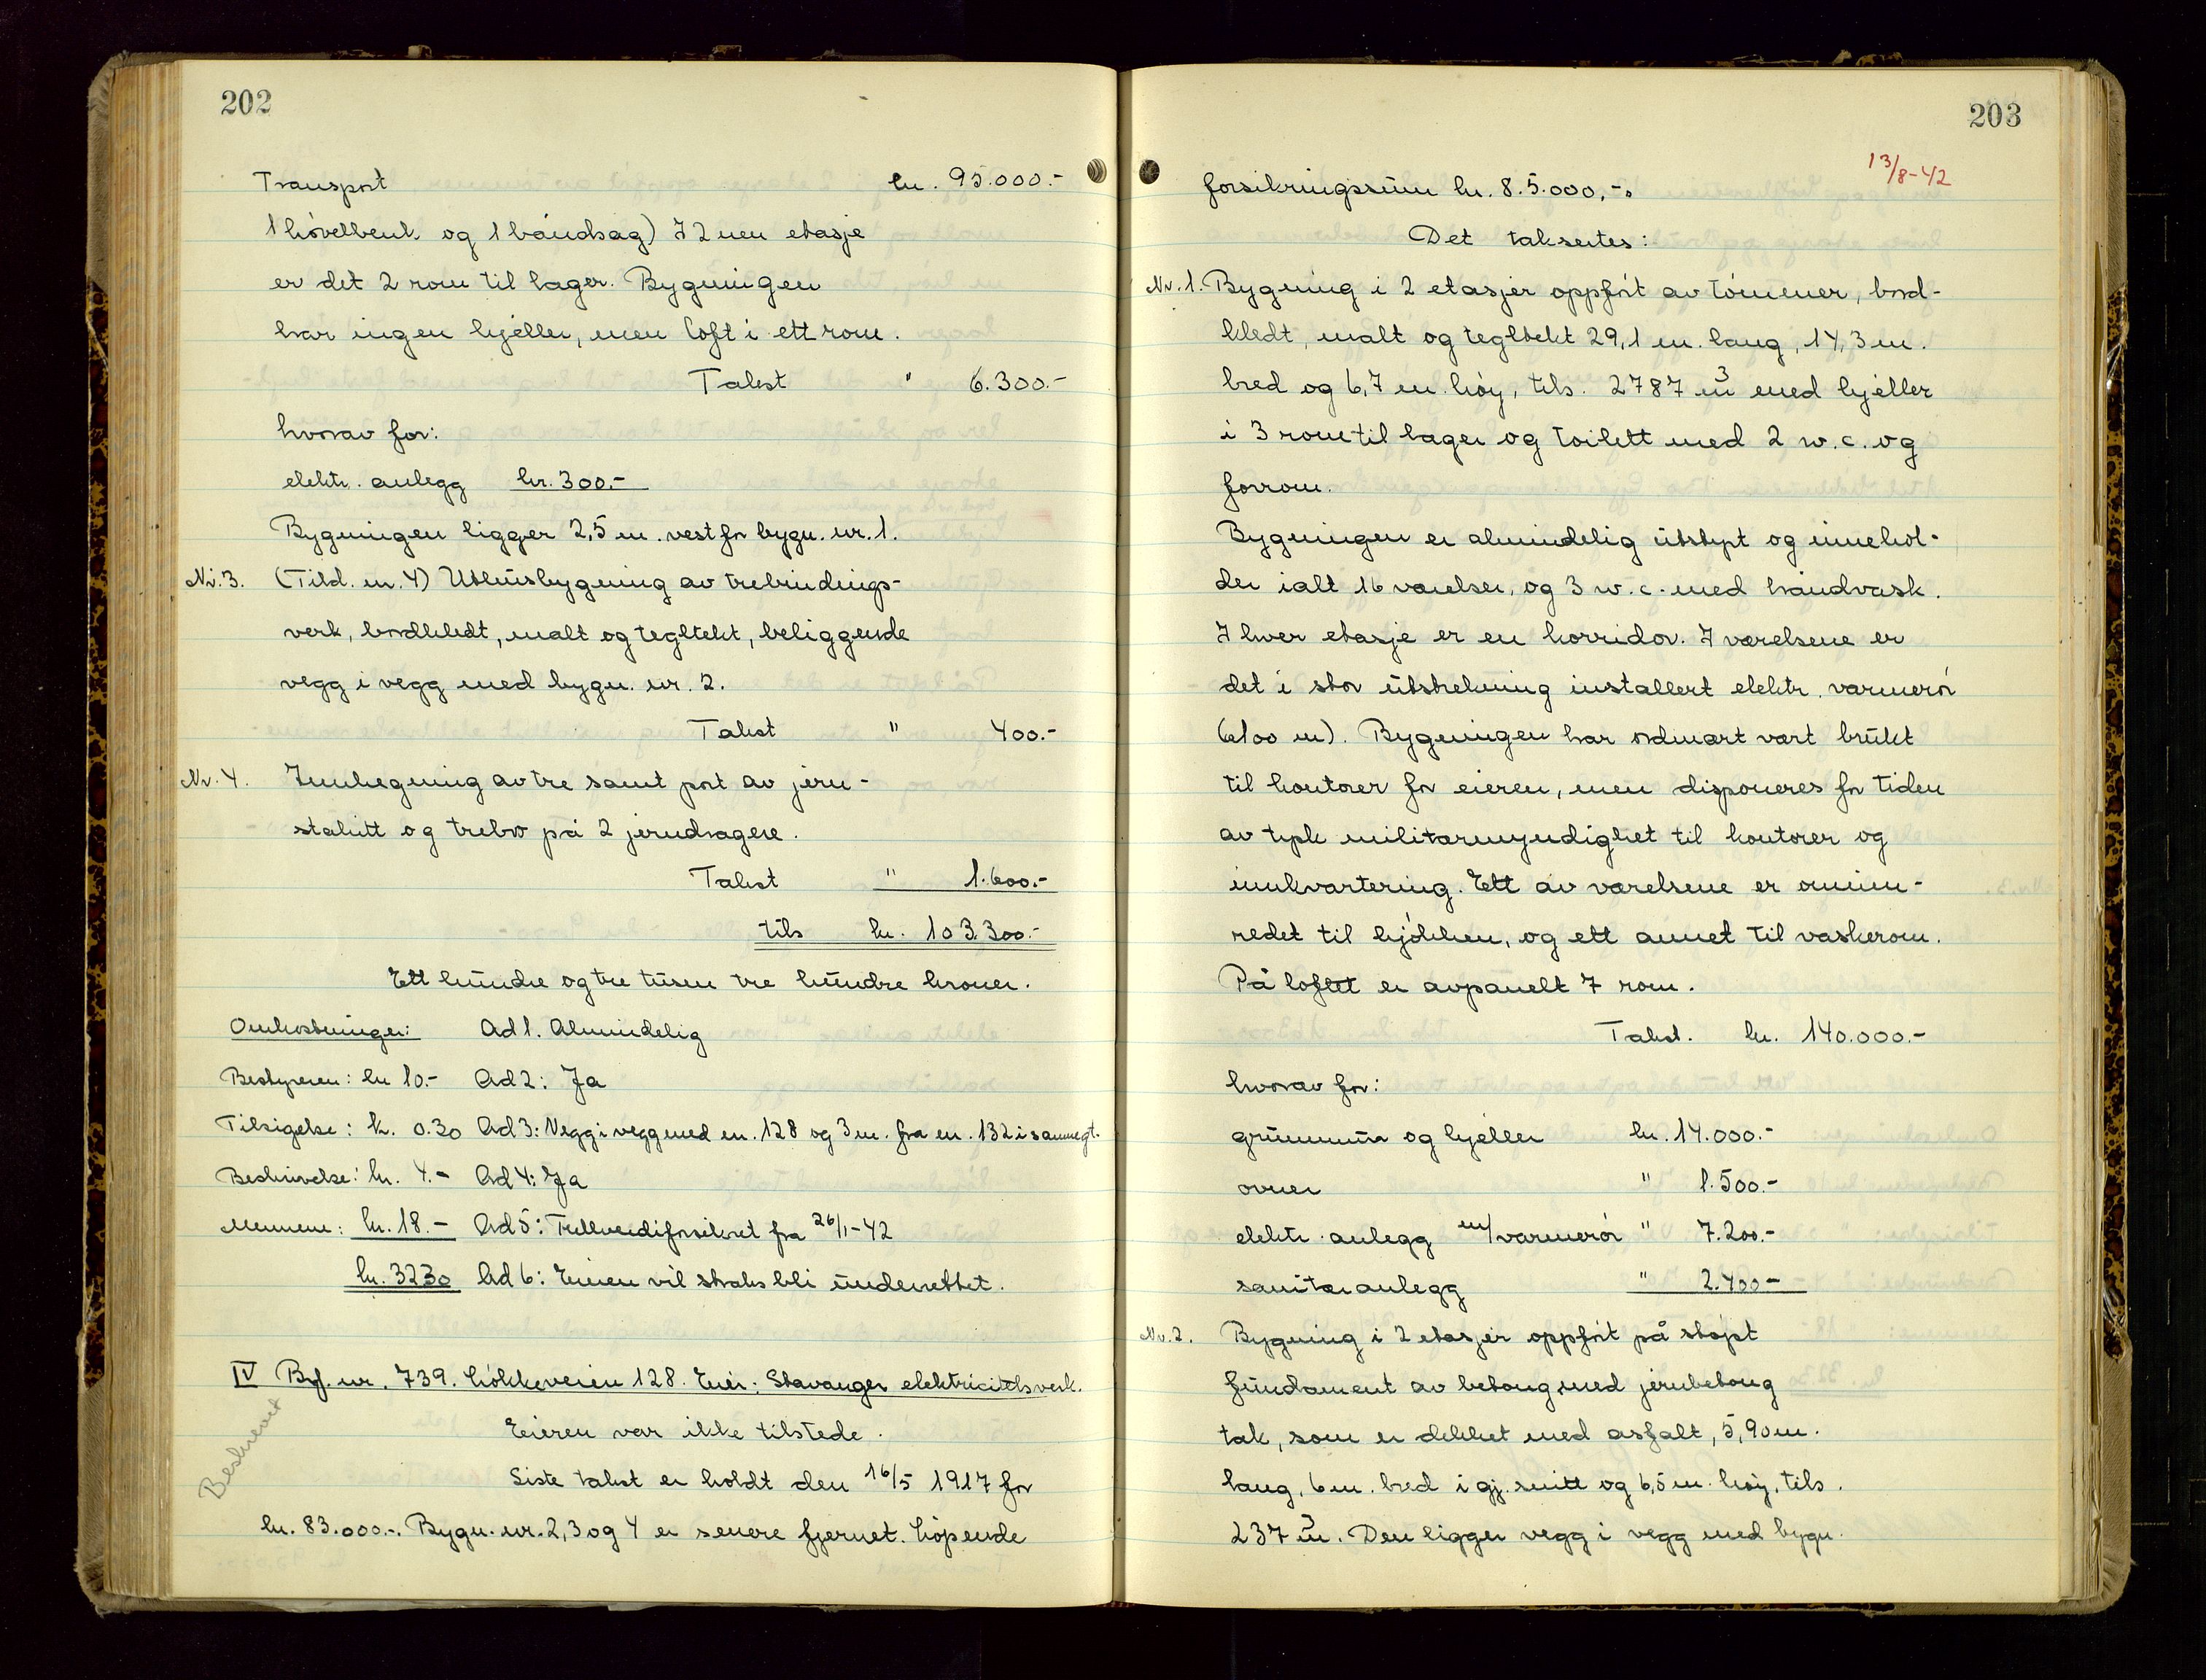 202
Transport kr. 95.000.-
1 høvelbenk og 1 båndsag) I 2nen etasje
er det 2 rom til lager. Bygningen
har ingen kjeller, men loft i ett rom.
Takst " 6.300.-
hvorav for:
elektr. anlegg kr. 300.-
Bygningen ligger 2,5 m. vest for bygn. nr. 1.
Nr. 3. (Tild. nr. 4) Uthusbygning av trebindings-
verk, bordkledt, malt og tegltekt, beliggende
vegg i vegg med bygn. nr. 2.
Takst " 400.-
Nr. 4. Innhegning av tre samt port av jern-
stakitt og trebro på 2 jerndragere.
Takst " 1.600.-
tils kr. 103.300.-
Ett hundre og tre tusen tre hundre kroner.
Omkostninger: Ad 1. Almindelig
Bestyreren: kr 10.- Ad 2: Ja
Tilsigelse: k. 0.30 Ad 3: Vegg i vegg med en. 128 og 3 m. fra en. 132 i samme gt.
Beskrivelse: kr. 4.- Ad 4: Ja
Mennene: kr. 18.- Ad 5: Fullverdiforsikret fra 26/1-42
kr. 32 30 Ad 6: Eieren vil straks bli underrettet.
IV Brf. nr. 739. Løkkeveien 128. Eier: Stavanger elektricitetsverk.
Beskrevet
Eieren var ikke tilstede.
Siste takst er holdt den 16/5 1917 for
kr. 83.000.-. Bygn. nr. 2, 3 og 4 er senere fjernet. Løpende
203
13/8-42
forsikringssum kr. 8.5.000,-.
Det takseres:
Nr. 1. Bygning i 2 etasjer oppført av tømmer, bord-
kledt, malt og tegltekt 29,1 m. lang, 14,3 m.
bred og 6,7 m. høy, tils. 2787 m3 med kjeller
i 3 rom til lager og toilett med 2 w.c. og
forrom.
Bygningen er almindelig utstyrt og innehol-
der ialt 16 værelser, og 3 w.c. med håndvask.
I hver etasje er en korridor. I værelsene er
det i stor utstrekning installert elektr. varmerør
(100 m). Bygningen har ordinært vært brukt
til kontorer for eieren, men disponeres for tiden
av tysk militærmyndighet til kontorer og
innkvartering. Ett av værelsene er ominn-
redet til kjøkken, og ett annet til vaskerom.
På loftet er avpanelt 7 rom.
Takst. kr. 140.000.-
hvorav for:
grunnmur og kjeller kr. 14.000.-
ovner " 1.500.-
elektr. anlegg m/varmerør " 7.200.-
sanitæranlegg " 2.400-
Nr. 2. Bygning i 2 etasjer oppført på støpt
fundament av betong med jernbetong
tak, som er dekket med asfalt, 5,90 m.
lang, 6 m. bred i gj. snitt og 6,5 m. høy, tils.
237 m3. Den ligger vegg i vegg med bygn.